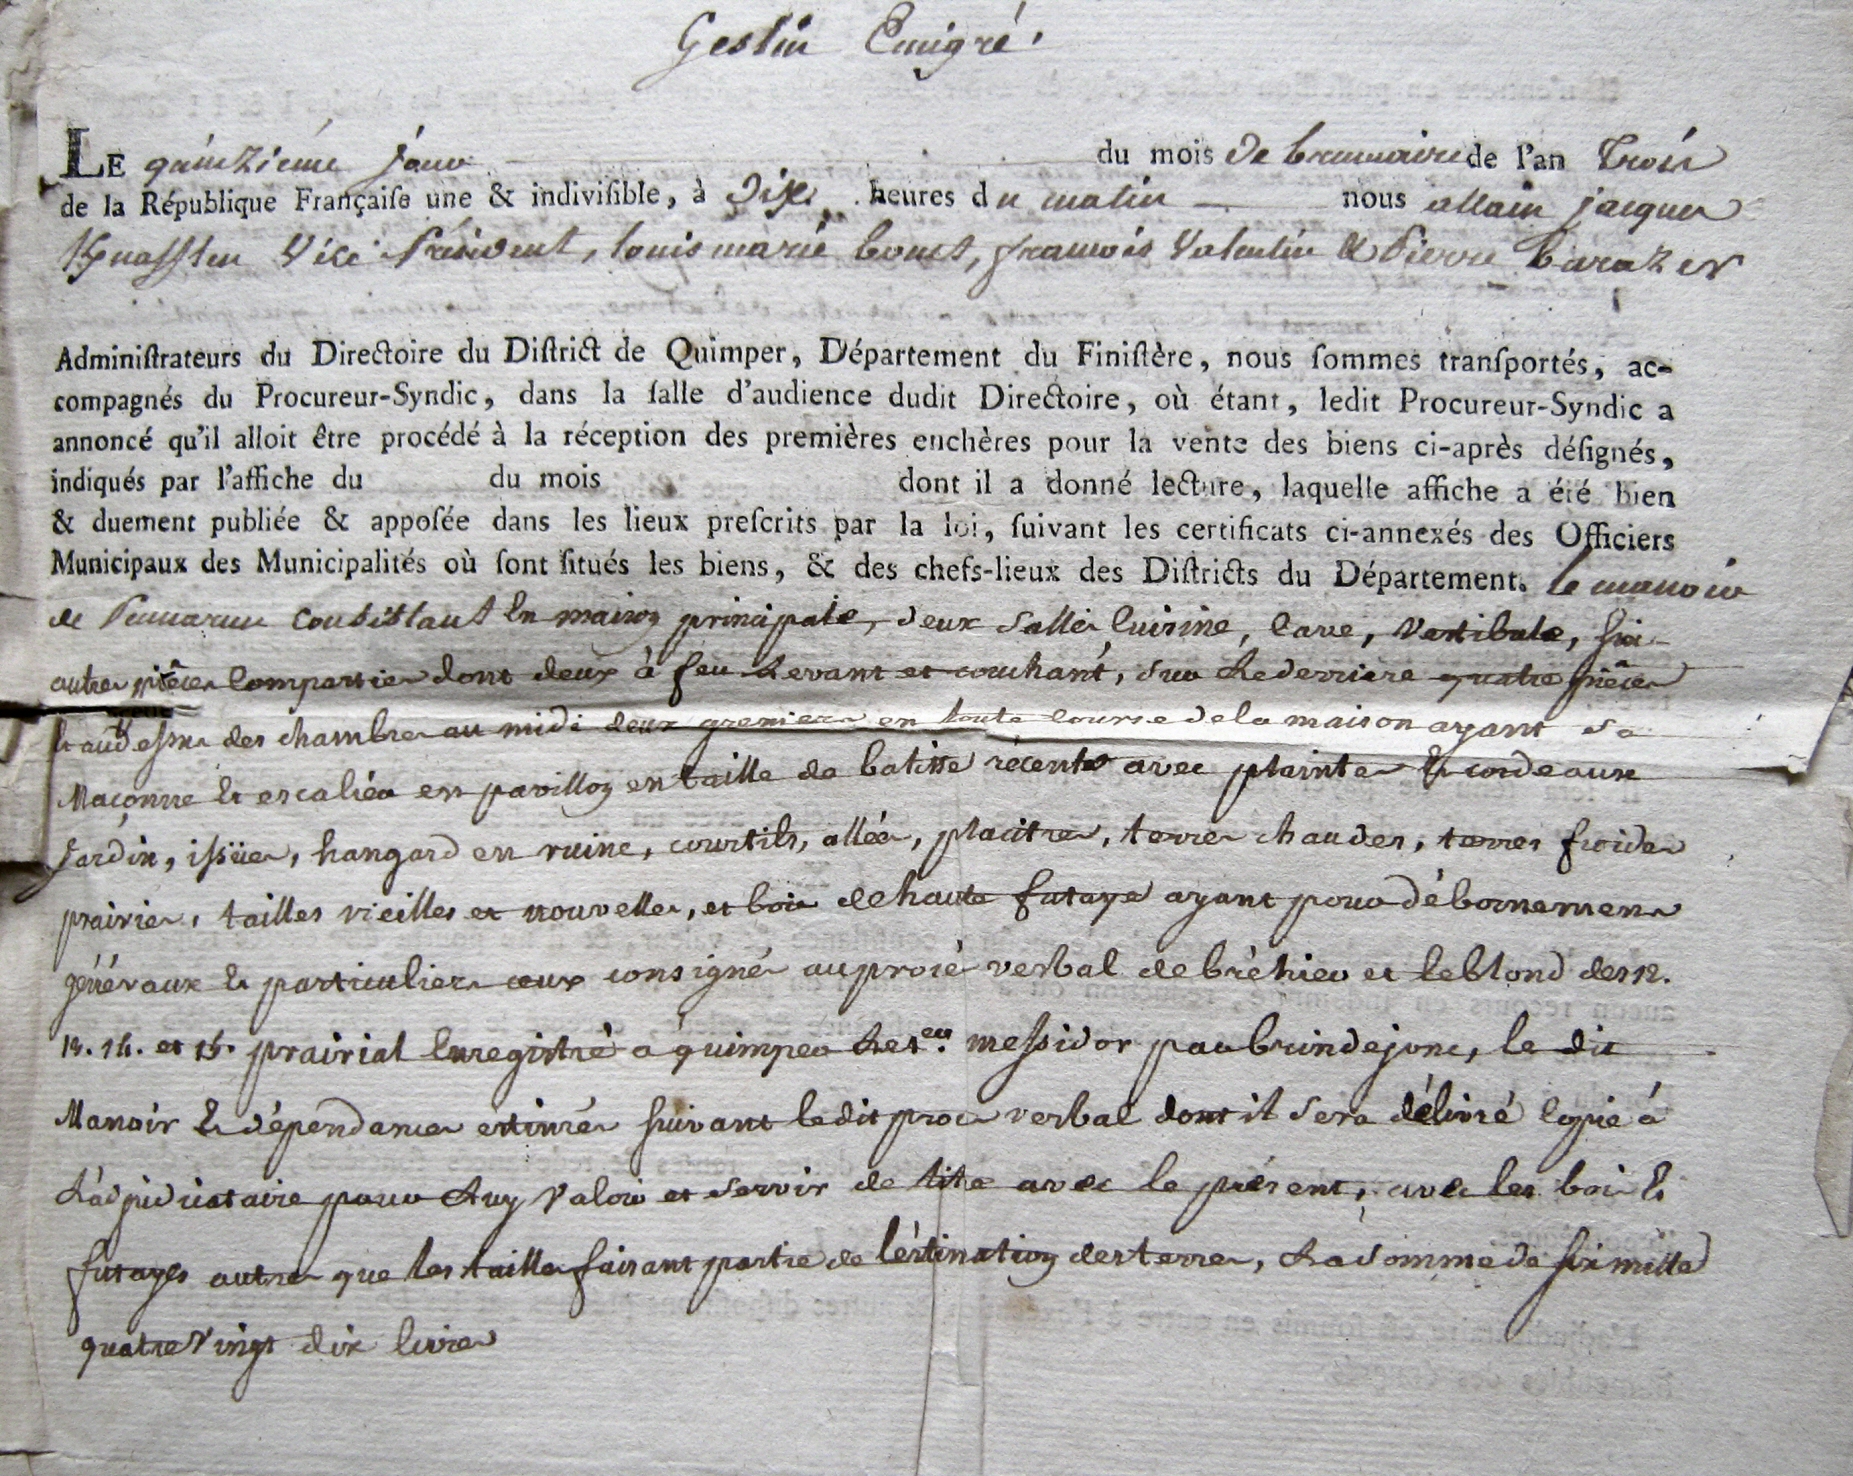 Gestin Emigré.
LE quinziéme jour du mois de brumaire de l'an Trois
de la République Françaiſe une & indiviſible, à Dix heures du matin nous allain jacques
Vice Président, louis marie bouet, francois Valentin & Pierre barazer
Adminiſtrateurs du Directoire du Diſtrict de Quimper, Département du Finiſtère, nous ſommes tranſportés, ac-
compagnés du Procureur-Syndic, dans la ſalle d'audience dudit Directoire, où étant, ledit Procureur-Syndic a
annoncé qu'il alloit être procédé à la réception des premières enchères pour la vente des biens ci-après déſignés,
indiqués par l'affiche du du mois dont il a donné lecture, laquelle affiche a été bien
& duement publiée & appoſée dans les lieux preſcrits par la loi, ſuivant les certificats ci-annexés des Officiers
Municipaux des Municipalités où ſont ſitués les biens, & des chefs-lieux des Diſtricts du Département. le manoir
de Consistant En maison principale, deux salles Cuisine, Cave, Vestibule, six
autres pièces Comparties dont deux à feu Levant et couchant, sur Le derriere quatre pièces
& au dessus des chambres au midi deux greniers en toute Course de la maison ayant sa
Maçonne & escalier en pavillon en taille de batisse récente avec plainte & cordeaux
Jardin, issües, hangard en ruine, courtils, allée, placitres, terres chaudes, terres froides
prairies, tailles vieilles et nouvelles, et bois de haute futaye ayant pour débornemens
généraux & particuliers ceux consignés au procé verbal de bréhier et leblond des 12.
13. 14. et 15. prairial Enregistré à quimper Le 1er. messidor par brindejonc, le dit
Manoir & dépendances estimés suivant le dit proces verbal dont il sera délivré Copie à
L'adjudicataire pour Luy Valoir et servir de titre avec le présent, avec les bois &
futayes autres que les tailles faisant partie de l'éstimation des terres, La somme de six mille
quatre Vingt dix livres